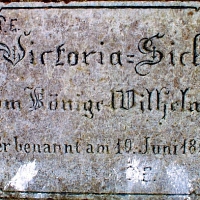 Victoria=Sich
om Könige Wilhelm
er benannt am 19. Juni 18